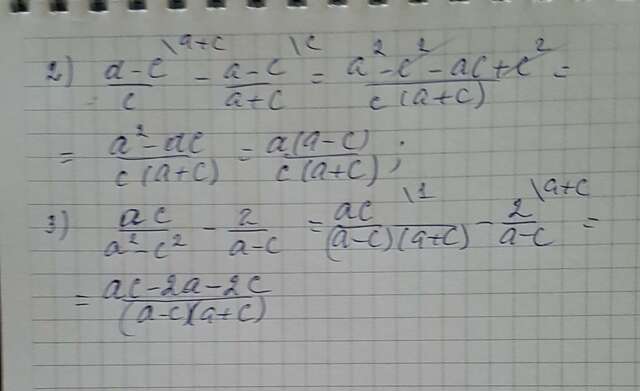 2) (a-c)/c \a+c - (a-c)/(a+c) \c = (a²-c²-ac+c²)/(c(a+c)) =
= (a²-ac)/(c(a+c)) = a(a-c)/(c(a+c));
3) ac/(a²-c²) - 2/(a-c) = ac/((a-c)(a+c)) \1 - 2/(a-c) \a+c =
= (ac-2a-2c)/((a-c)(a+c))